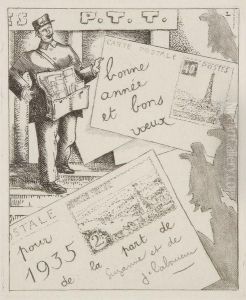 P.T.T.
CARTE POSTALE
POSTES
bonne
année
et bons
vœux
POSTALE
pour
1935
de la part de
Suzanne et de